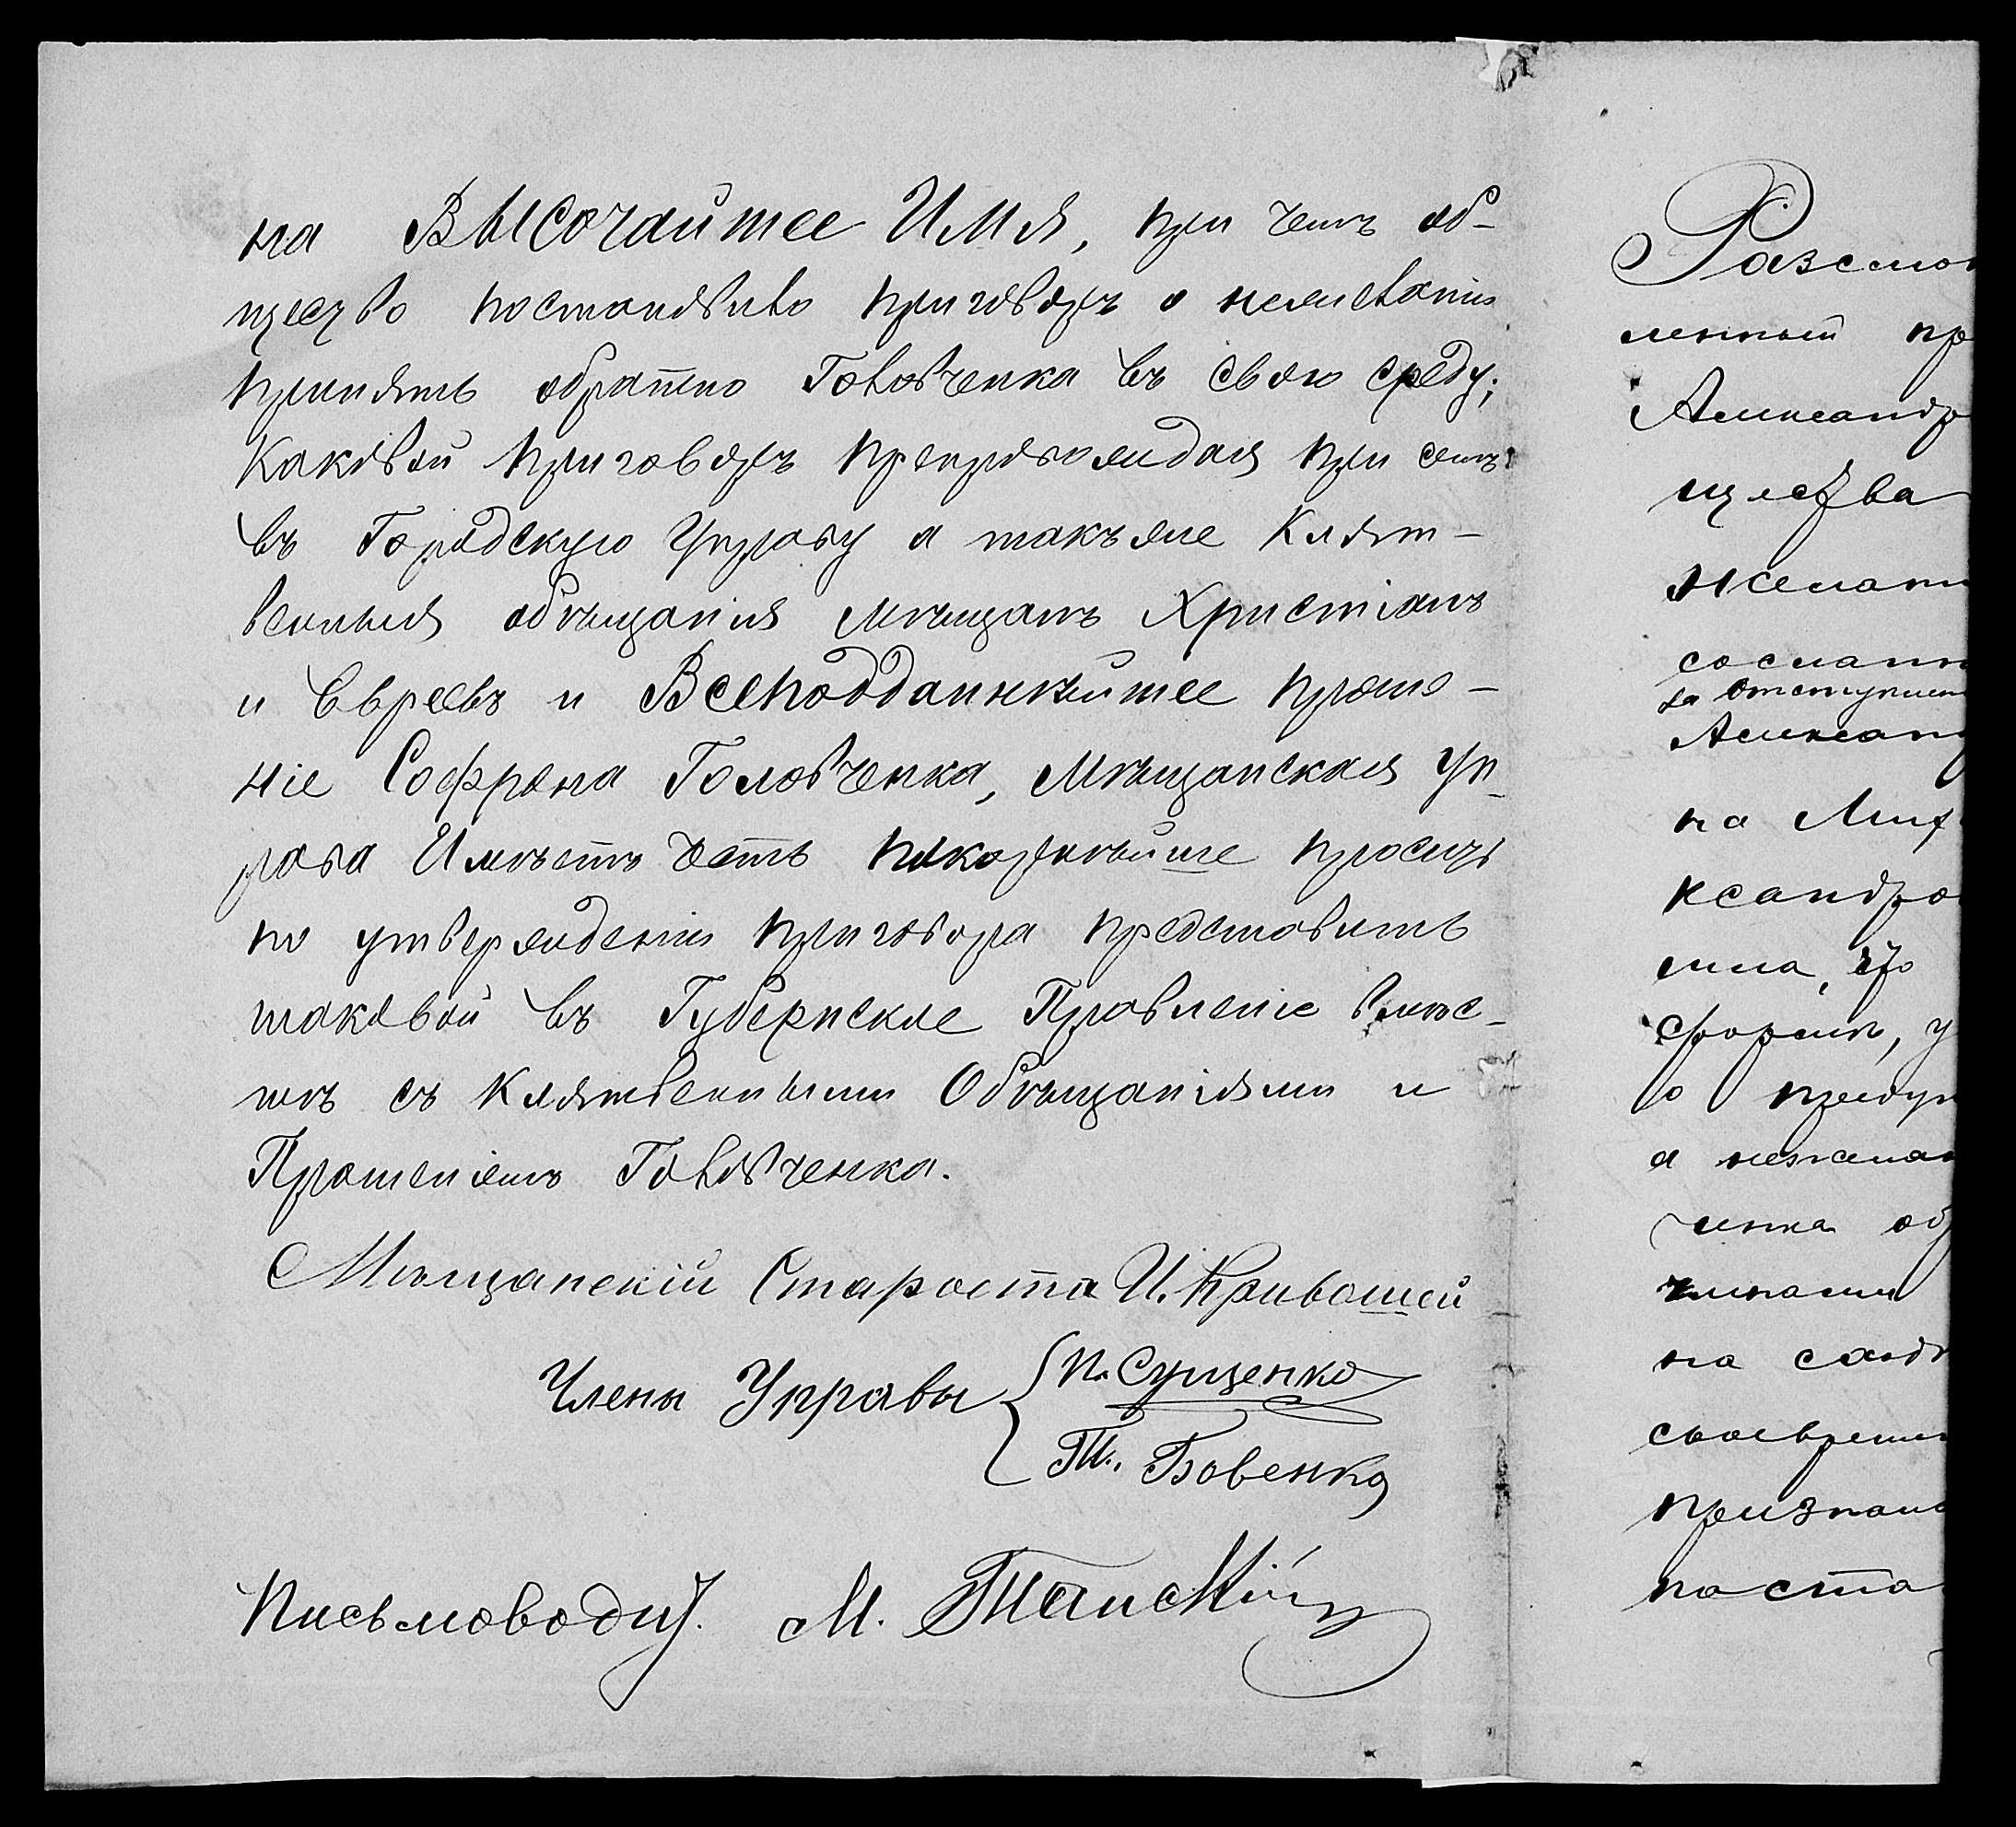 на Высочайшее Имя, при чемъ об-
щество постановило приговоръ о нежеланіи
принять обратно Головченка въ свою среду;
Каковой приговоръ препровождая при семъ
въ Городскую Управу а такъже Клят-
венныя обѣщанія мѣщанъ Христіанъ
и Евреевъ и Всеподданнѣйшее проше-
ніе Софрона Головченка, Мѣщанская Уп-
рава Имѣетъ честь покорнѣйше просить
по утвержденіи приговора представить
таковой въ Губернское Правленіе вмѣс-
тѣ съ Клятвенными Обѣщаніями и
Прошеніемъ Головченка.
Мѣщанскій Староста И. Кривошей
Члены Управы
П. Сущенко
Т. Бовенко
Письмоводит. М.
Разсмо
ленный пр
Александр
щества
желани
сослан
за отступлен
Александ
на Мих
ксандро
что
форми, у
о
а нежелан
ченка об
чинами
на
своевремен
признан
поста